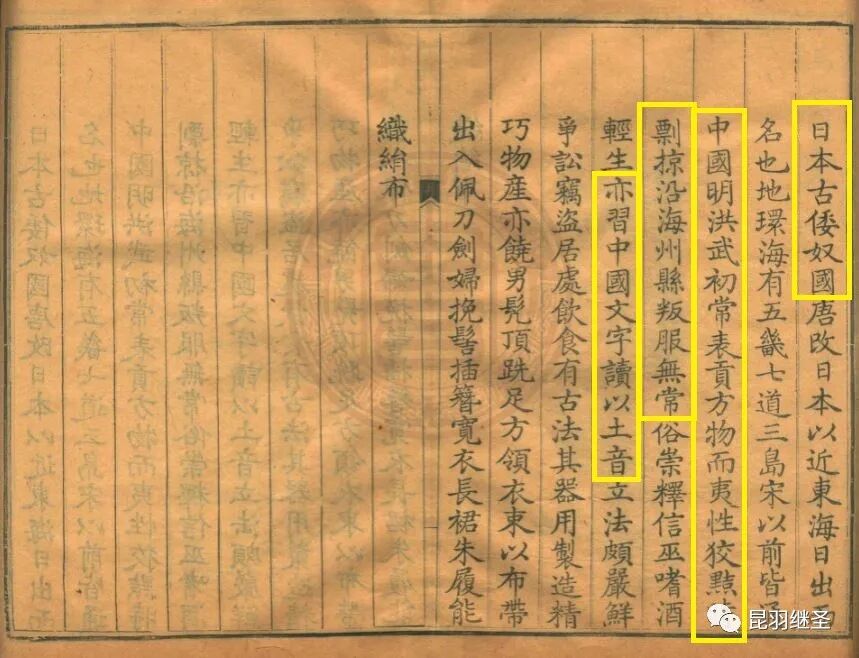 日本古倭奴國唐改日本以近東海日出而
名也地環海有五畿七道三島宋以前皆
中國明洪武初常表貢方物而夷性狡黠
剽掠沿海州縣叛服無常俗崇釋信巫嗜酒
輕生亦習中國文字讀以土音立法頗嚴鮮
爭訟竊盜居處飲食有古法其器用製造精
巧物產亦饒男髡頂跣足方領衣束以布帶
出入佩刀劍婦挽髻插簪寬衣長裙朱履能
織絹布
昆羽继圣